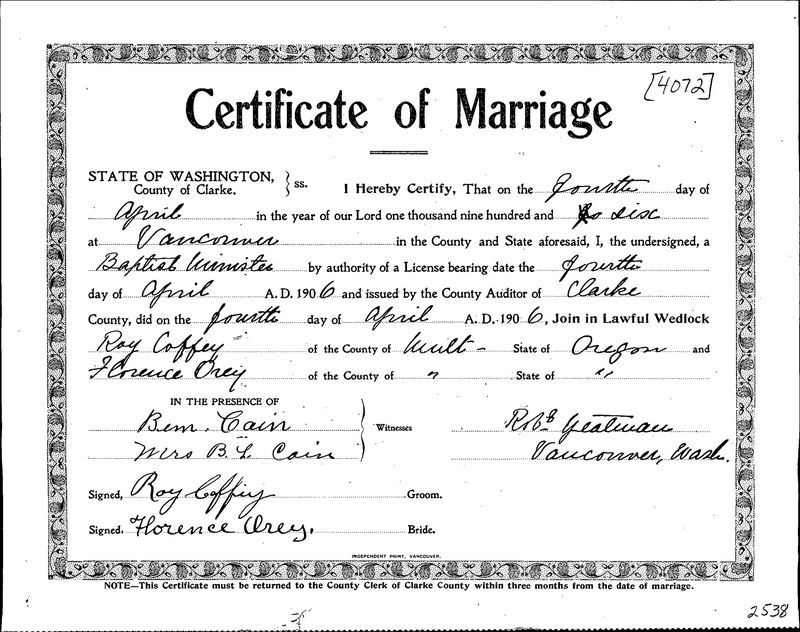 [4072]
Certificate of Marriage
STATE OF WASHINGTON, } ss. I Hereby Certify, That on the fourth day of
County of Clarke.
April in the year of our Lord one thousand nine hundred and six
at Vancouver in the County and State aforesaid, I, the undersigned, a
Baptist Minister by authority of a License bearing date the fourth
day of April A. D. 1906 and issued by the County Auditor of Clarke
County, did on the fourth day of April A. D. 1906, Join in Lawful Wedlock
Roy Coffey of the County of Mult- State of Oregon and
Florence Orey of the County of " State of "
IN THE PRESENCE OF
Bem. Cain } Witnesses Robt Yeatman
Mrs B. L. Cain Vancouver, Wash.
Signed, Roy Coffey Groom.
Signed, Florence Orey. Bride.
INDEPENDENT PRINT, VANCOUVER.
NOTE—This Certificate must be returned to the County Clerk of Clarke County within three months from the date of marriage.
2538